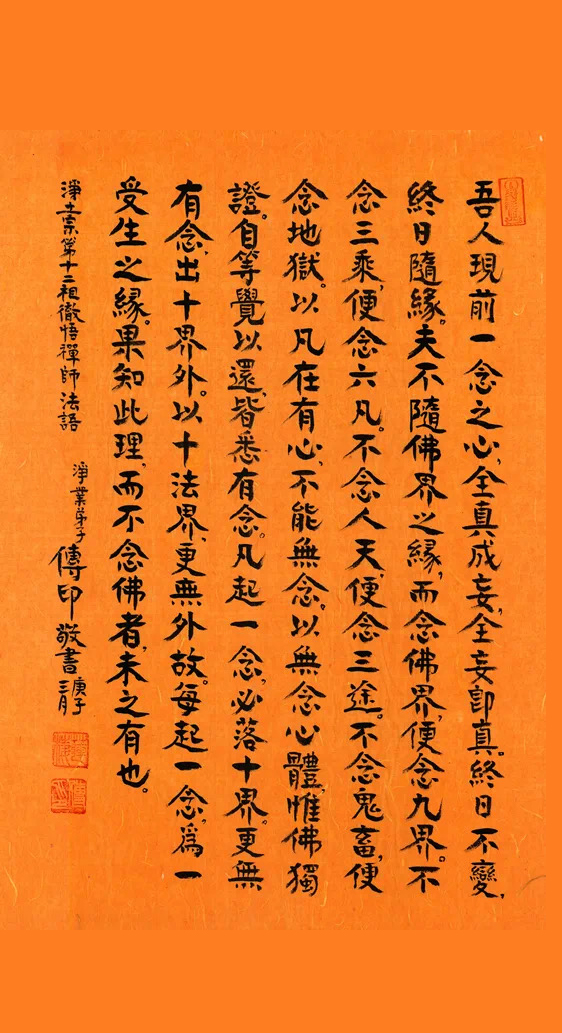 吾人現前一念之心,全真成妄,全妄即真。終日不變,
終日隨緣。夫不隨佛界之緣,而念佛界,便念九界。不
念三乘,便念六凡。不念人天,便念三途。不念鬼畜,便
念地獄。以凡在有心,不能無念。以無念心體,惟佛獨
證。自等覺以還,皆悉有念。凡起一念,必落十界。更無
有念,出十界外。以十法界,更無外故。每起一念,為一
受生之緣。果知此理,而不念佛者,未之有也。
淨業第十二祖徹悟禪師法語
淨業弟子傳印敬書庚子三月